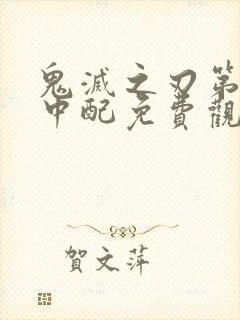 鬼滅之刃第
中配免費觀
賀文萍